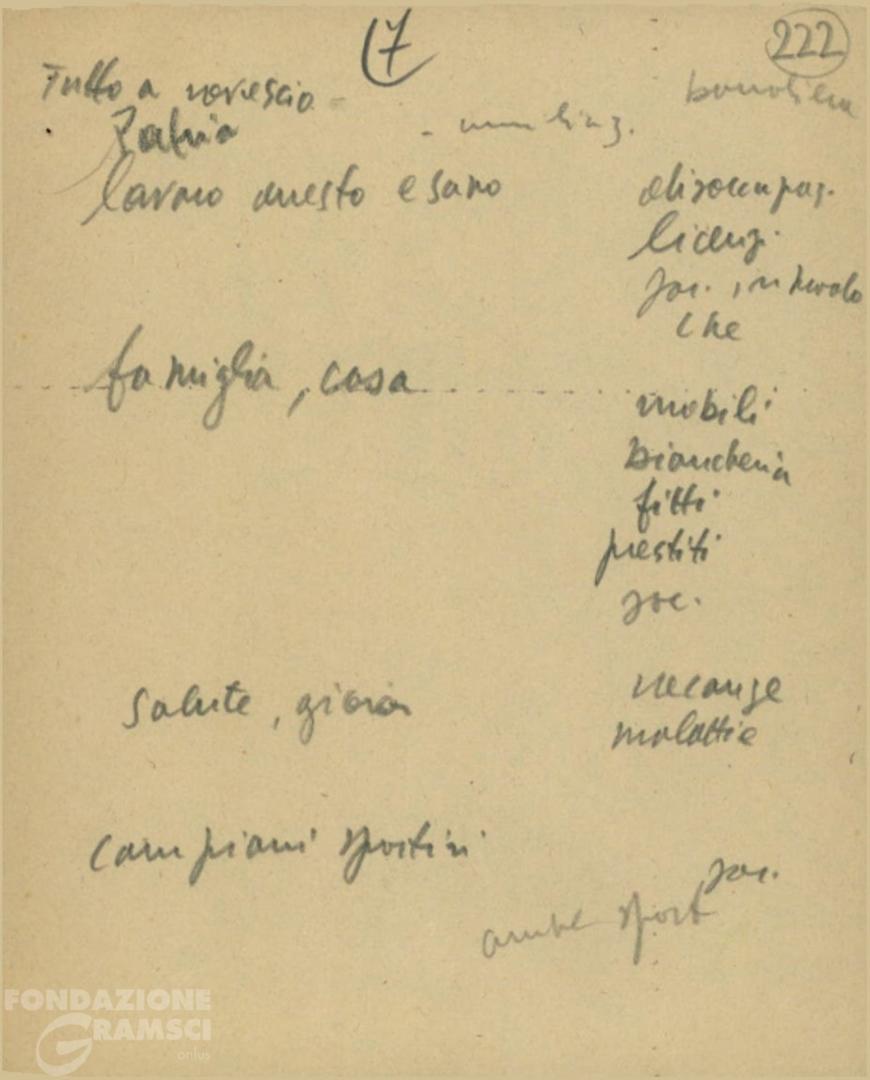 (7
222
Tutto a rovescio -
bandiera
Patria
lavoro onesto e sano
disoccupaz.
licenz.
soc.
che
famiglia, casa
mobili
biancheria
fitti
prestiti
soc.
salute, gioia
vacanze
malattie
campioni sportivi
soc.
anche sport
FONDAZIONE
GRAMSCI
onlus